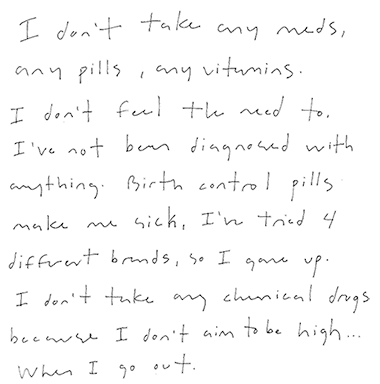 I don't take any meds,
any pills, any vitamins.
I don't feel the need to.
I've not been diagnosed with
anything. Birth control pills
make me sick, I've tried 4
different brands, so I gave up.
I don't take any chemical drugs
because I don't aim to be high...
When I go out.